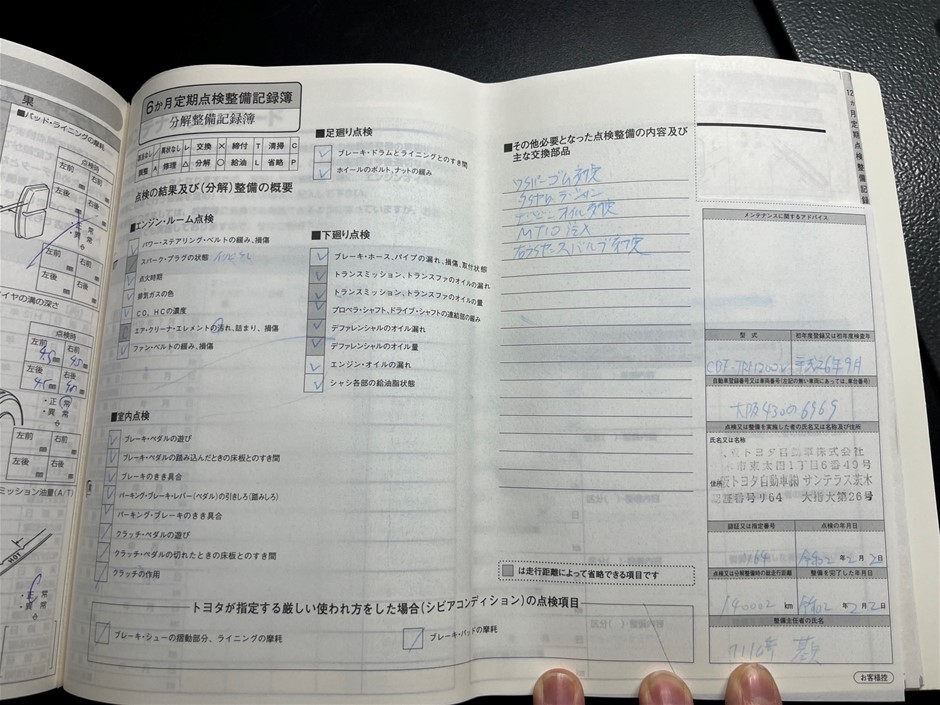 果
■パッド・ライニングの摩耗
点検時
左前 右前
左後 右後
正常
異常
左前 右前
左後 右後
タイヤの溝の深さ
点検時
左前 右前
4.5 4.5
左後 右後
・正常
・異常
左前 右前
左後 右後
ミッション油量(A/T)
HOT
・正常
・異常
6か月定期点検整備記録簿
分解整備記録簿
該当なし 異状なし レ 交換 × 締付 T 清掃 C
調整 A 修理 △ 分解 ○ 給油 L 省略 P
点検の結果及び(分解)整備の概要
■エンジン・ルーム点検
パワー・ステアリング・ベルトの緩み、損傷
スパーク・プラグの状態
点火時期
排気ガスの色
CO、HCの濃度
エア・クリーナ・エレメントの汚れ、詰まり、損傷
ファン・ベルトの緩み、損傷
■室内点検
ブレーキ・ペダルの遊び
ブレーキ・ペダルの踏み込んだときの床板とのすき間
ブレーキのきき具合
パーキング・ブレーキ・レバー(ペダル)の引きしろ(踏みしろ)
パーキング・ブレーキのきき具合
クラッチ・ペダルの遊び
クラッチ・ペダルの切れたときの床板とのすき間
クラッチの作用
■足廻り点検
ブレーキ・ドラムとライニングとのすき間
ホイールのボルト、ナットの緩み
■下廻り点検
ブレーキ・ホース、パイプの漏れ、損傷、取付状態
トランスミッション、トランスファのオイルの漏れ
トランスミッション、トランスファのオイルの量
プロペラ・シャフト、ドライブ・シャフトの連結部の緩み
デファレンシャルのオイル漏れ
デファレンシャルのオイル量
エンジン・オイルの漏れ
シャシ各部の給油脂状態
■その他必要となった点検整備の内容及び
主な交換部品
ワイパーゴム交換
エンジンオイル交換
MT10注入
は走行距離によって省略できる項目です
トヨタが指定する厳しい使われ方をした場合(シビアコンディション)の点検項目
ブレーキ・シューの摺動部分、ライニングの摩耗
ブレーキ・パッドの摩耗
12カ月定期点検整備記録
メンテナンスに関するアドバイス
型式 初年度登録又は初年度検査年
平成26年9月
自動車登録番号又は車両番号(左記の無い車両にあっては、車台番号)
大阪430の6969
点検又は整備を実施した者の氏名又は名称及び住所
氏名又は名称
阪トヨタ自動車株式会社
木市東太田1丁目6番49号
住所 阪トヨタ自動車㈱ サンテラス茨木
認証番号リ64 大指大第26号
認証又は指定番号 点検の年月日
164 令和2年2月2日
点検又は分解整備時の総走行距離 整備を完了した年月日
140002 km 令和2年2月2日
整備主任者の氏名
お客様控